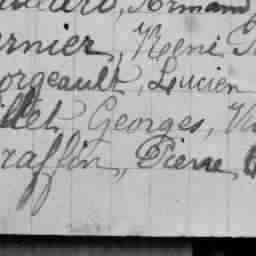 Armand
ernier, René
orgeault, Lucien
illet Georges, Vi
raffin, Pierre,